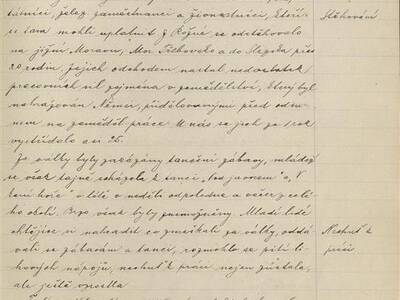 železn. zaměstnanci a živnostníci, kteří
se tam mohli uplatnit. Z Rožné se odstěhovalo Stěhování
na jižní Moravu, Mor. Třebovsko a do Slezska přes
20 rodin. Jejich odchodem nastal nedostatek
pracovních sil zejména v zemědělství, který byl
nahrazován Němci, přidělovanými před odsu-
nem na zeměděl. práce. U nás se jich za 1 rok
vystřídalo asi 75.
Za války byly zakázány taneční zábavy, mládež
se však tajně scházela k tanci „pod javorem" a „V
hoře" v létě v neděli odpoledne a večer z celé-
ho okolí. Brzo však byly Mladí lidé
chtějíce si nahradit co zmeškali za války, oddá- Nechuť k
vali se zábavám a tanci, rozmohlo se pití li- práci.
hových nápojů, nechuť k práci nejen zůstala,
ale ještě vzrostla